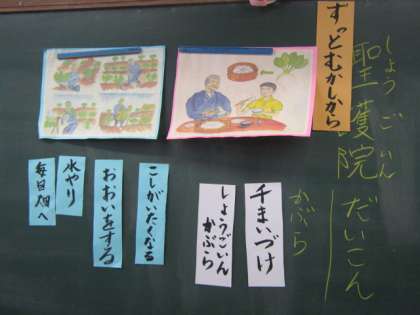 ずっとむかしから
しょうごいん
聖護院
だいこん
かぶら
千まいづけ
しょうごいん
かぶら
こしがいたくなる
おおいをする
水やり
毎日畑へ